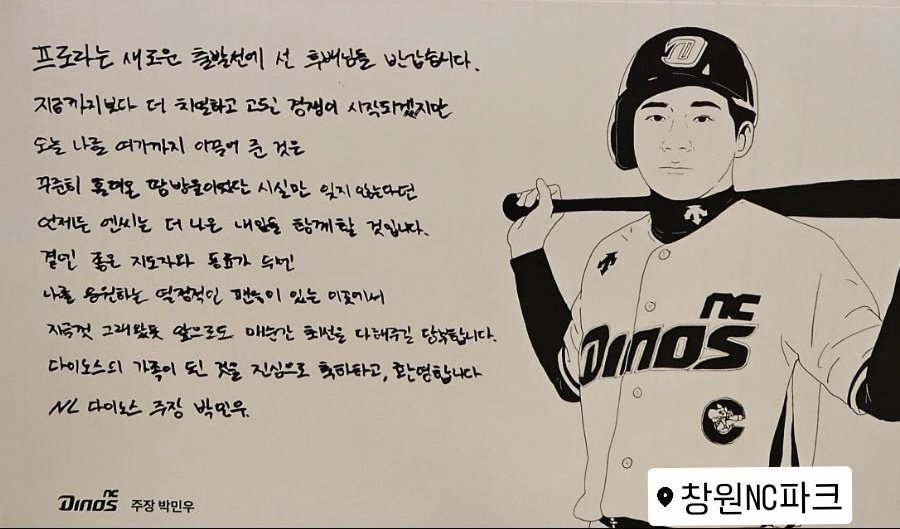 프로라는 새로운 출발선에 선 후배님들 반갑습니다.
지금까지보다 더 치열하고 고된 경쟁이 시작되겠지만
오늘 나를 여기까지 이끌어 준 것은
꾸준히 흘려온 땀방울이었단 사실만 잊지 않는다면
언제든 엔씨는 더 나은 내일을 함께할 것입니다.
곁엔 좋은 지도자와 동료가 두번
나를 응원하는 열정적인 팬들이 있는 이곳에서
지금껏 그래왔듯 앞으로도 매순간 최선을 다해주길 당부합니다.
다이노스의 가족이 된 것을 진심으로 축하하고, 환영합니다
NC 다이노스 주장 박민우.
NC
DINOS
NC
DINOS 주장 박민우
창원NC파크